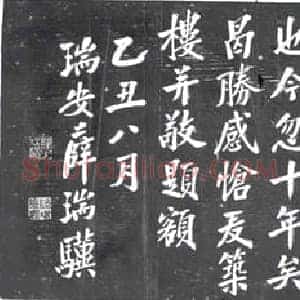 也今忽十年矣
曷勝感愴爰築
樓并敬題額
乙丑八月
瑞安薛瑞驥